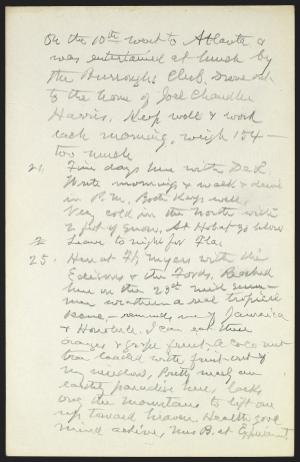 On the 10th went to Atlanta &
was entertained at lunch by
the Burroughs Club, Drove out
to the home of Joel Chandler
Harris. Keep well & work
each morning, weigh 154 —
too much
21. Fine days here with Dr.
Write mornings & walk & drive
in P.M. Both keep well,
Very cold in the North with
2 feet of snow. At Hobart 30 below
Leave to night for Fla.
25. Here at Ft Myers with the
Edisons & the Fords. Reached
here on the 23d mid sum-
mer weather & a real tropical
scene — reminds me of Jamaica
& Honolulu. I can eat these
oranges & grape fruit. A cocoanut
tree loaded with fruit out of
my window. Pretty near an
earthly paradise here, lacks
only the mountains to lift one
up toward heaven. Health good
mind active, Mrs B. at